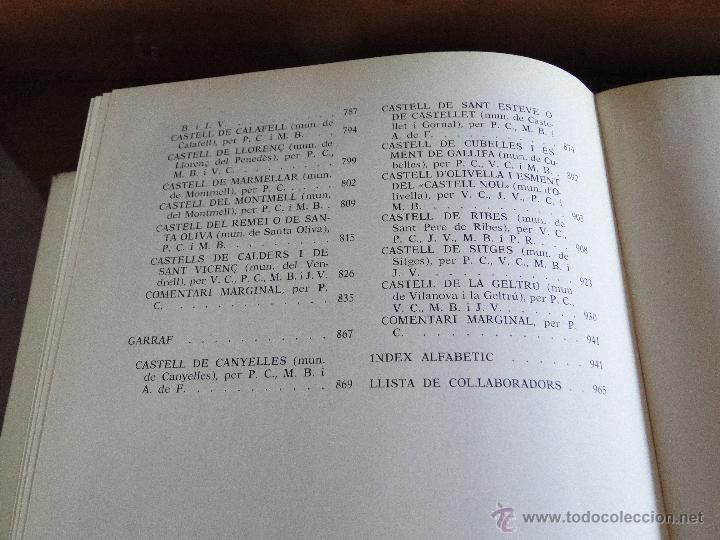 B. i J. V. . . . . . . . . . . 787
CASTELL DE CALAFELL (mun. de
Calafell), per P. C. i M. B. . 794
CASTELL DE LLORENÇ (mun. de
Llorenç del Penedès), per P. C.,
M. B. i V. C. . . . . . . . . 799
CASTELL DE MARMELLAR (mun.
de Montmell), per P. C. . . . 802
CASTELL DEL MONTMELL (mun.
del Montmell), per P. C. i M. B. . 809
CASTELL DEL REMEI O DE SAN-
TA OLIVA (mun. de Santa Oliva),
P. C. i M. B. . . . . . . . . 815
CASTELLS DE CALDERS I DE
SANT VICENÇ (mun. del Ven-
drell), per V. C., P. C., M. B. i J. V. 826
COMENTARI MARGINAL, per P.
C. . . . . . . . . . . . . 835
GARRAF . . . . . . . . . . 867
CASTELL DE CANYELLES (mun.
de Canyelles), per P. C., M. B. i
A. de F. . . . . . . . . . . 869
CASTELL DE SANT ESTEVE O
DE CASTELLET (mun. de Caste-
llet i Gornal), per P. C., M. B. i
A. de F. . . . . . . . . . . 874
CASTELL DE CUBELLES I ES-
MENT DE GALLIFA (mun. de Cu-
belles), per P. C., V. C. i M. B. . 892
CASTELL D'OLIVELLA I ESMENT
DEL «CASTELL NOU» (mun. d'O-
livella), per V. C., J. V., P. C. i
M. B. . . . . . . . . . . . 903
CASTELL DE RIBES (mun. de
Sant Pere de Ribes), per V. C.,
P. C., J. V., M. B. i P. R. . . 908
CASTELL DE SITGES (mun. de
Sitges), per P. C., V. C., M. B. i
J. V. . . . . . . . . . . . 923
CASTELL DE LA GELTRÚ (mun.
de Vilanova i la Geltrú), per P. C.,
V. C., M. B. i J. V. . . . . . 930
COMENTARI MARGINAL, per P.
C. . . . . . . . . . . . . 941
INDEX ALFABETIC . . . . . 941
LLISTA DE COL.LABORADORS . . 965
www.todocoleccion.net